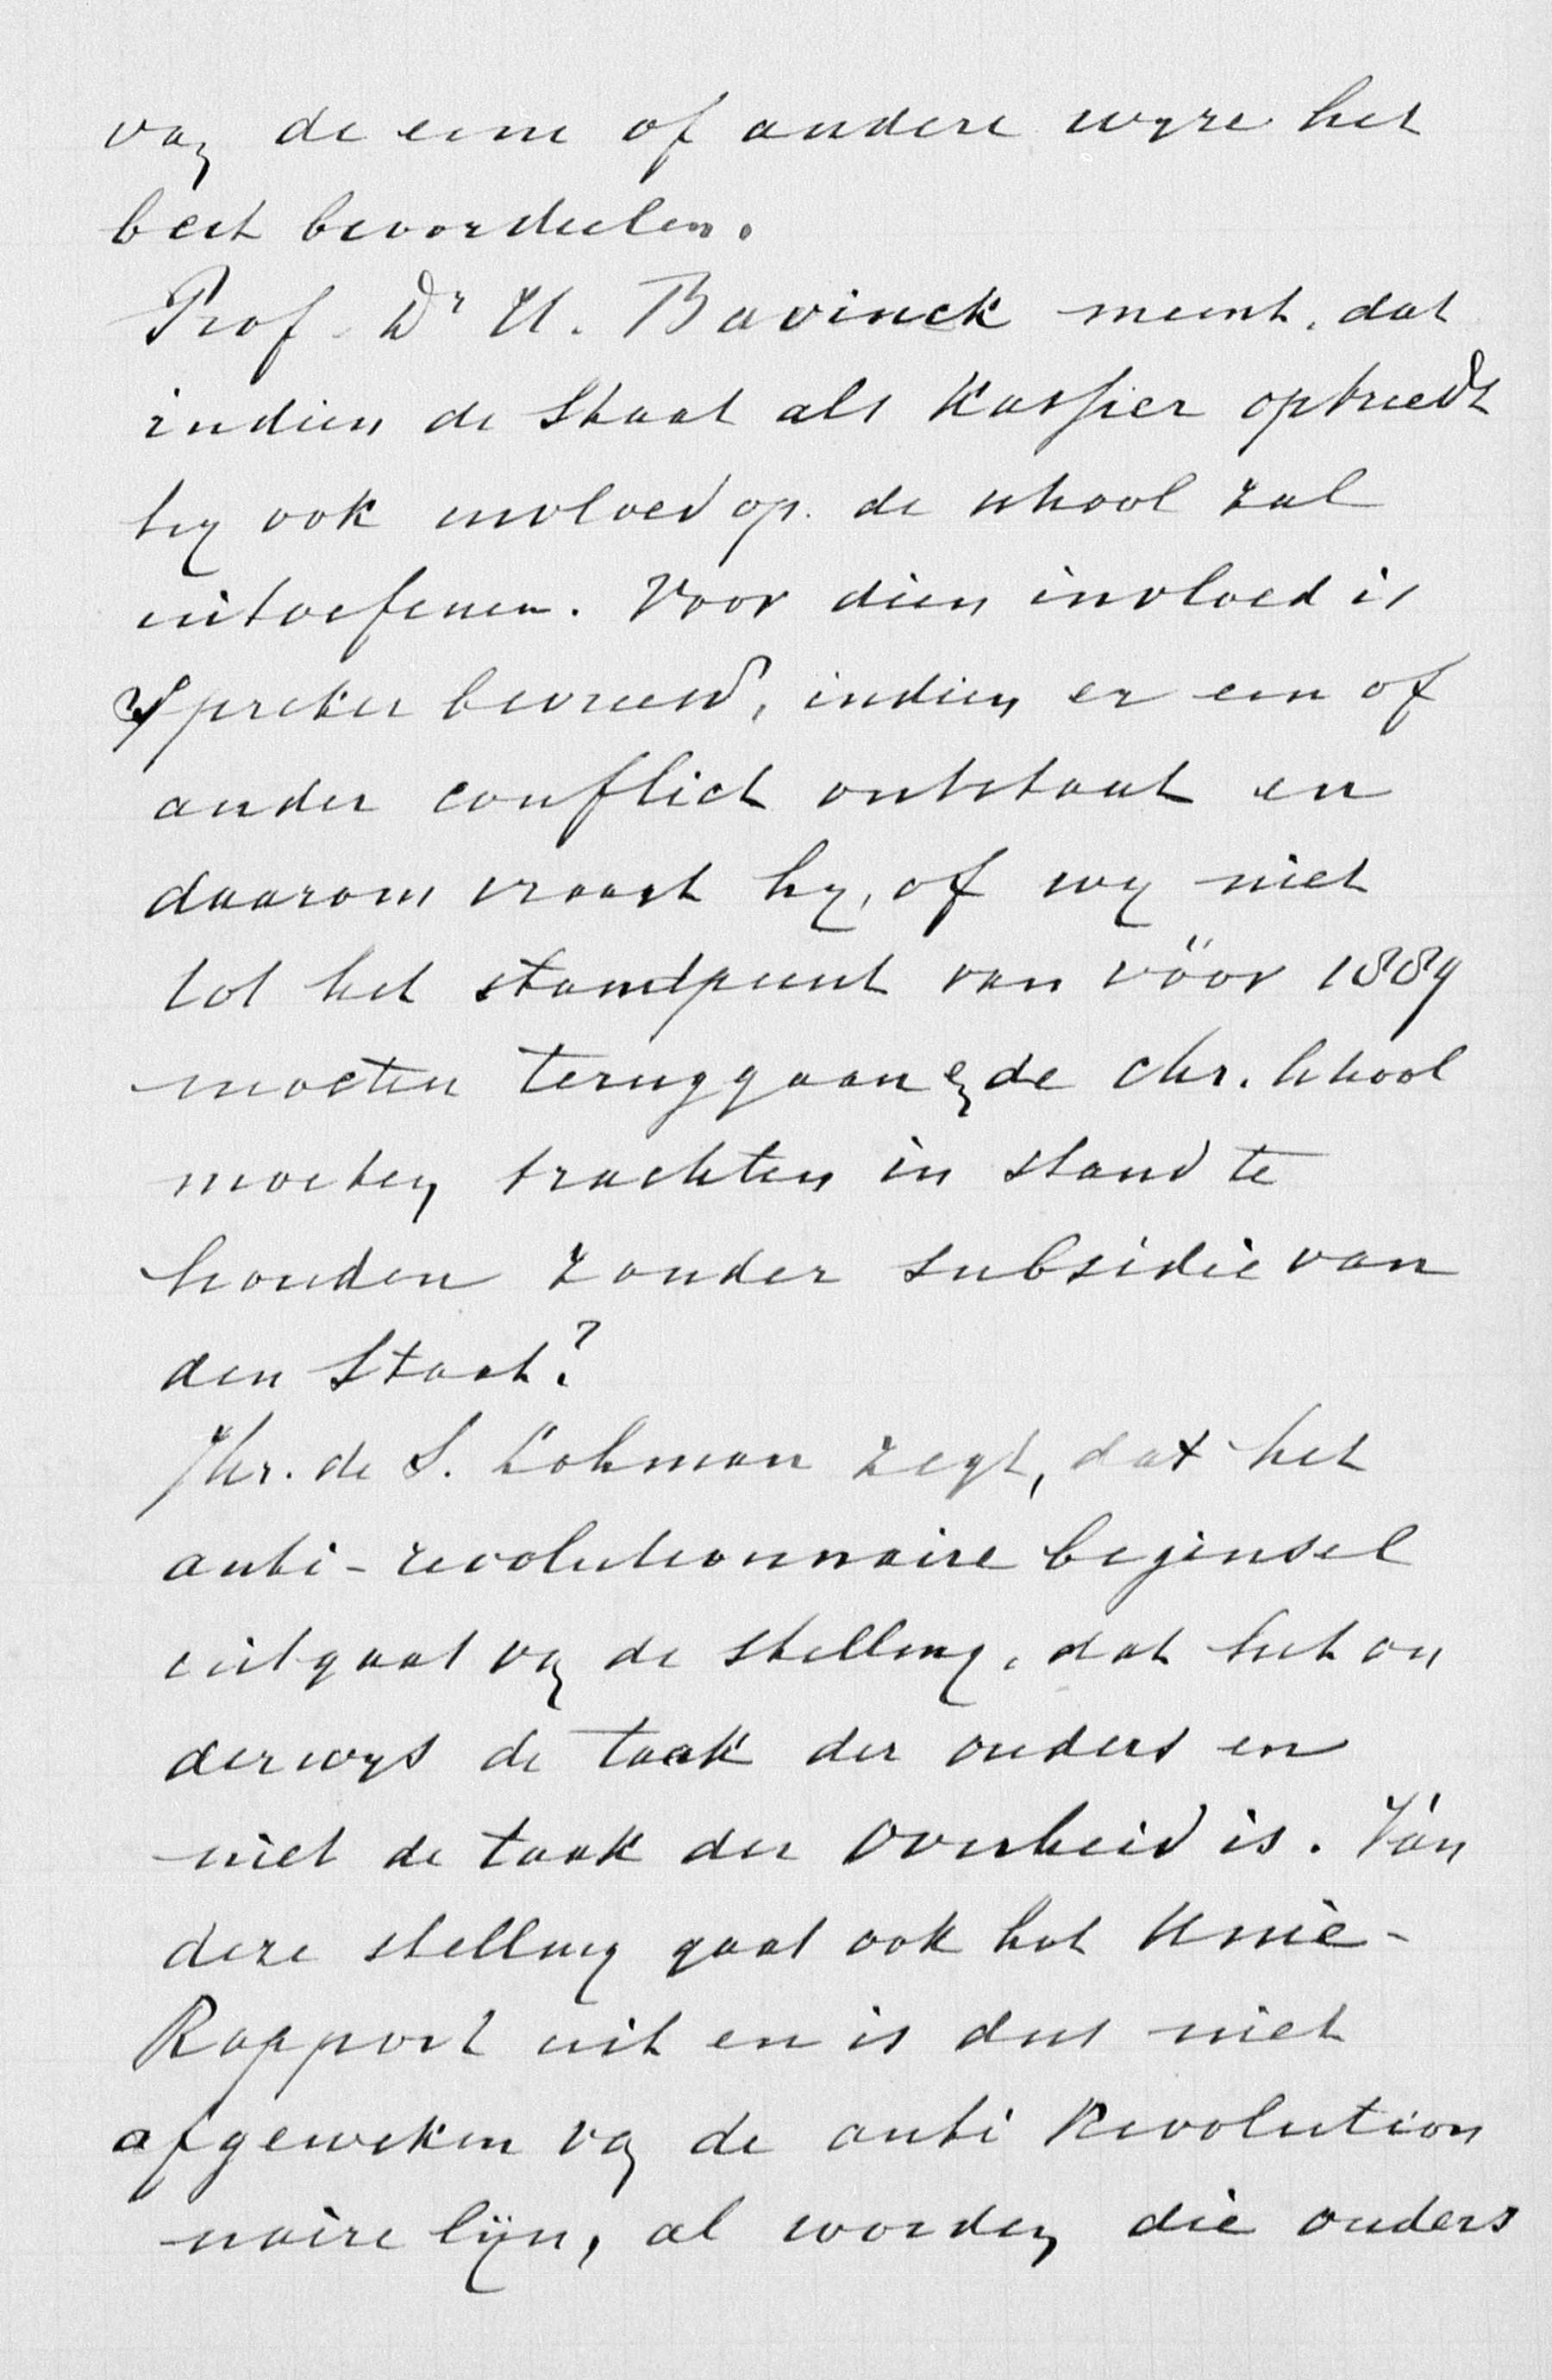 van de eene of andere wyze het
best bevorderlen.
Prof. Dr H. Bavinck meent, dat
indien de Staat als Kassier optreedt
hy ook invloed op de school zal
uitoefenen. Voor dien invloed is
Spreker bevreesd, indien er een of
ander conflict ontstaat en
daarom vraagt hy, of wy niet
tot het standpunt van vóór 1889
moeten teruggaan en de Chr. School
moeten trachten in stand te
houden zonder subsidie van
den Staat?
Jhr. de S. Lohman zegt, dat het
anti-revolutionnaire beginsel
uitgaat van de stelling, dat het on
derwys de taak der ouders en
niet de taak der Overheid is. Ván
deze stelling gaat ook het Unie-
Rapport uit en is dus niet
afgeweken van de anti Revolution
naire lijn, al worden die ouders